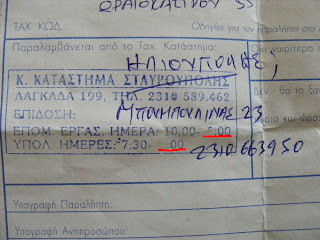 ΩΡΑΙΟΚΑΣΤΡΟΥ 55
ΤΑΧ. ΚΩΔ.:
Οδηγίες για τον παραλήπτη στο
Παραλαμβάνεται από το Ταχ. Κατάστημα:
ΗΛΙΟΥΠΟΛΗΣ,
Κ. ΚΑΤΑΣΤΗΜΑ ΣΤΑΥΡΟΥΠΟΛΗΣ
ΛΑΓΚΑΔΑ 199, ΤΗΛ. 2310 589.462
ΕΠΙΔΟΣΗ: ΜΠΟΥΜΠΟΥΛΙΝΑΣ 23
ΕΠΟΜ. ΕΡΓΑΣ. ΗΜΕΡΑ: 10.00- :00
ΥΠΟΛ. ΗΜΕΡΕΣ: 7.30- .00
2310 663950
Υπογραφή Παραλήπτη:
Υπογραφή Αντιπροσώπου: